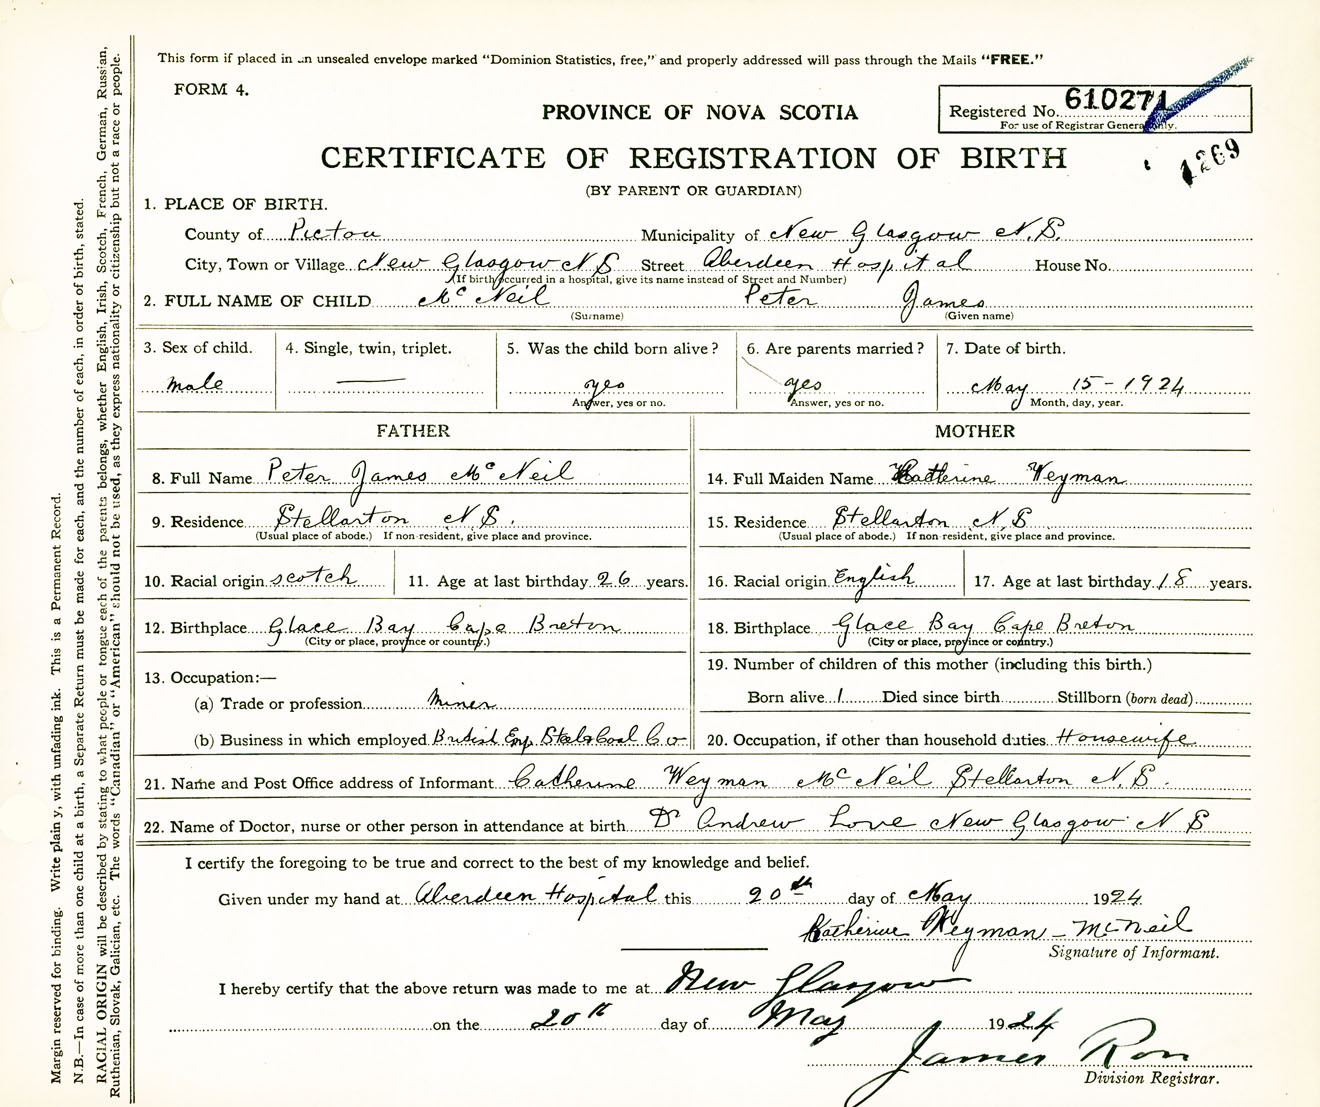 This form if placed in an unsealed envelope marked "Dominion Statistics, free," and properly addressed will pass through the Mails "FREE."
FORM 4.
PROVINCE OF NOVA SCOTIA
Registered No. 610271
For use of Registrar General only.
1269
CERTIFICATE OF REGISTRATION OF BIRTH
(BY PARENT OR GUARDIAN)
1. PLACE OF BIRTH.
County of Pictou Municipality of New Glasgow N.S.
City, Town or Village New Glasgow N S Street Aberdeen Hospital House No.
(If birth occurred in a hospital, give its name instead of Street and Number)
2. FULL NAME OF CHILD McNeil Peter James
(Surname) (Given name)
3. Sex of child. 4. Single, twin, triplet. 5. Was the child born alive? 6. Are parents married? 7. Date of birth.
male — yes yes May 15-1924
Answer, yes or no. Answer, yes or no. Month, day, year.
FATHER MOTHER
8. Full Name Peter James McNeil 14. Full Maiden Name Katherine Weyman
9. Residence Stellarton N.S. 15. Residence Stellarton N.S
(Usual place of abode.) If non-resident, give place and province. (Usual place of abode.) If non-resident, give place and province.
10. Racial origin scotch 11. Age at last birthday 26 years. 16. Racial origin English 17. Age at last birthday 18 years.
12. Birthplace Glace Bay Cape Breton 18. Birthplace Glace Bay Cape Breton
(City or place, province or country.) (City or place, province or country.)
13. Occupation:— 19. Number of children of this mother (including this birth.)
(a) Trade or profession Miner Born alive 1 Died since birth Stillborn (born dead)
(b) Business in which employed British Emp Steel & Coal Co 20. Occupation, if other than household duties Housewife
21. Name and Post Office address of Informant Catherine Weyman McNeil Stellarton N.S.
22. Name of Doctor, nurse or other person in attendance at birth Dr Andrew Love New Glasgow N S
I certify the foregoing to be true and correct to the best of my knowledge and belief.
Given under my hand at Aberdeen Hospital this 20th day of May 1924
Katherine Weyman - McNeil
Signature of Informant.
I hereby certify that the above return was made to me at New Glasgow
on the 20th day of May 1924
James
Division Registrar.
Margin reserved for binding. Write plainly, with unfading ink. This is a Permanent Record.
N.B.—In case of more than one child at a birth, a Separate Return must be made for each, and the number of each, in order of birth, stated.
RACIAL ORIGIN will be described by stating to what people or tongue each of the parents belongs, whether English, Irish, Scotch, French, German, Russian,
Ruthenian, Slovak, Galician, etc. The words "Canadian" or "American" should not be used, as they express nationality or citizenship but not a race or people.